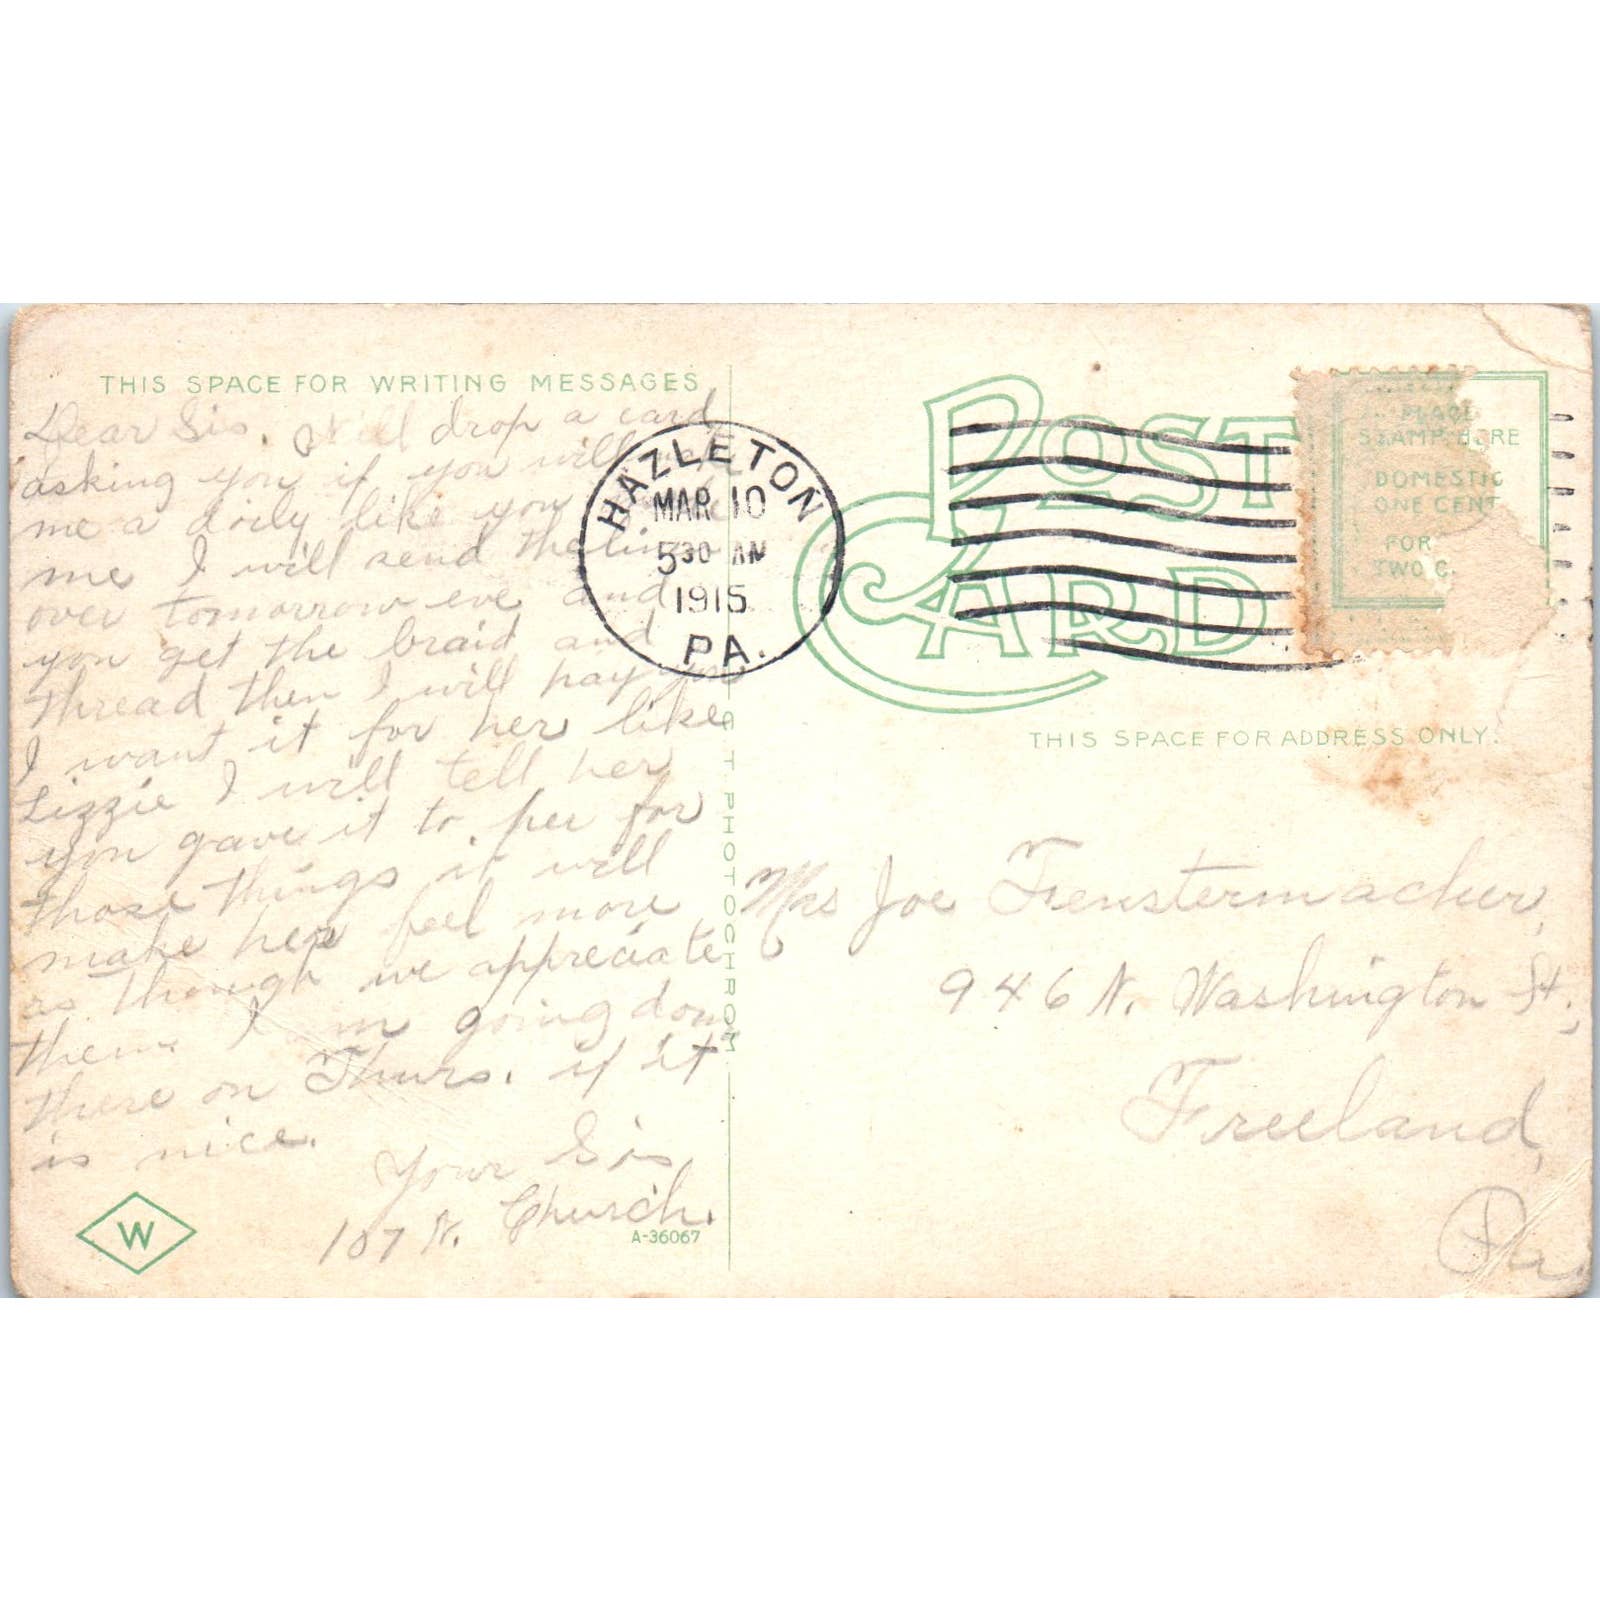 THIS SPACE FOR WRITING MESSAGES
Dear Sis. Will drop a card
asking you if you will make
me a doily like you
me I will send the linen
over tomorrow eve and
you get the braid and
thread then I will pay you
I want it for her like
Lizzie I will tell her
you gave it to her for
those things it will
make her feel more
as though we appreciate
them. I m going down
there on Thurs. if it
is nice.
Your Sis
107 N. Church.
W
A-36067
C T PHOTOCHROM
HAZLETON
MAR 10
5 30 AM
1915
PA.
POST CARD
PLACE
STAMP HERE
DOMESTIC
ONE CENT
FOR
TWO C
THIS SPACE FOR ADDRESS ONLY.
Mrs Joe Fenstermacher,
946 N. Washington St.,
Freeland,
Pa